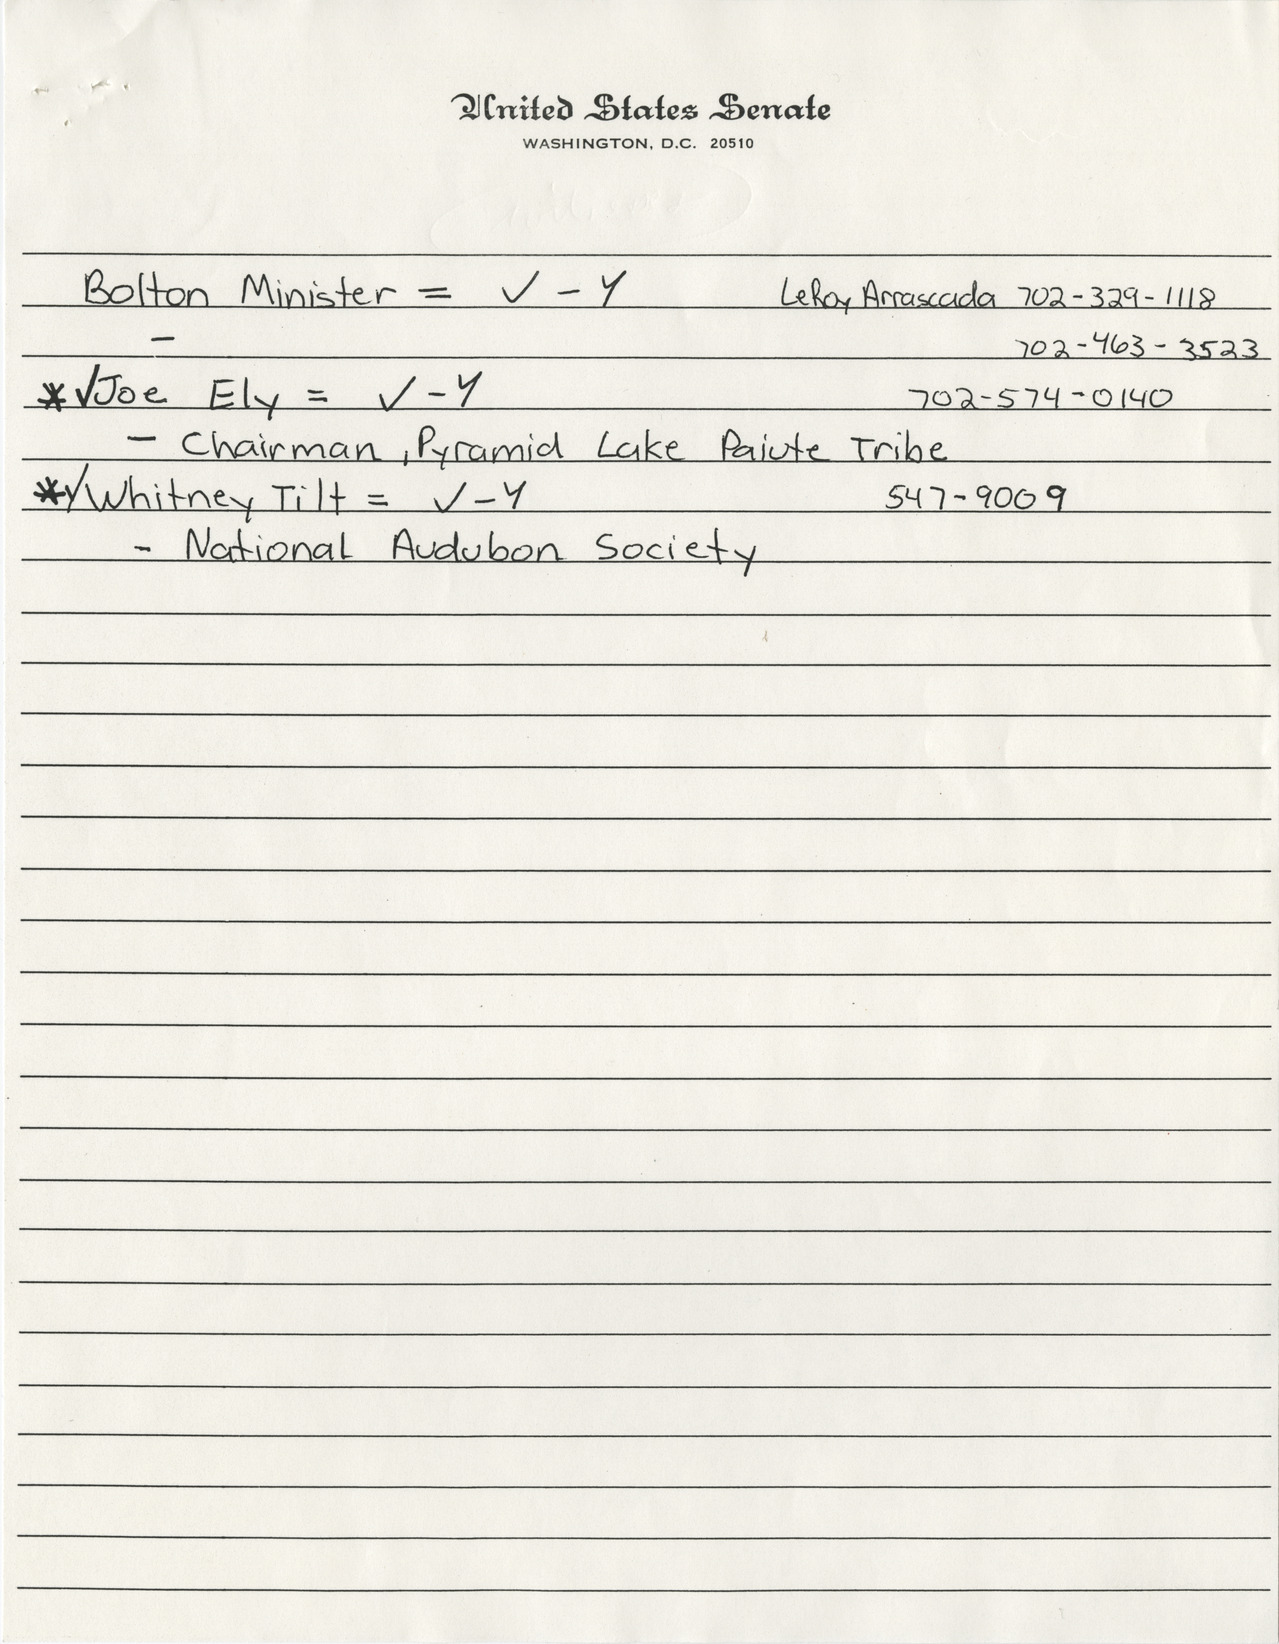 United States Senate
WASHINGTON, D.C. 20510
Bolton Minister = ✓ - Y LeRoy Arrascada 702-329-1118
- 702-463-3523
*✓Joe Ely = ✓ - Y 702-574-0140
- Chairman, Pyramid Lake Paiute Tribe
*✓Whitney Tilt = ✓ - Y 547-9009
- National Audubon Society